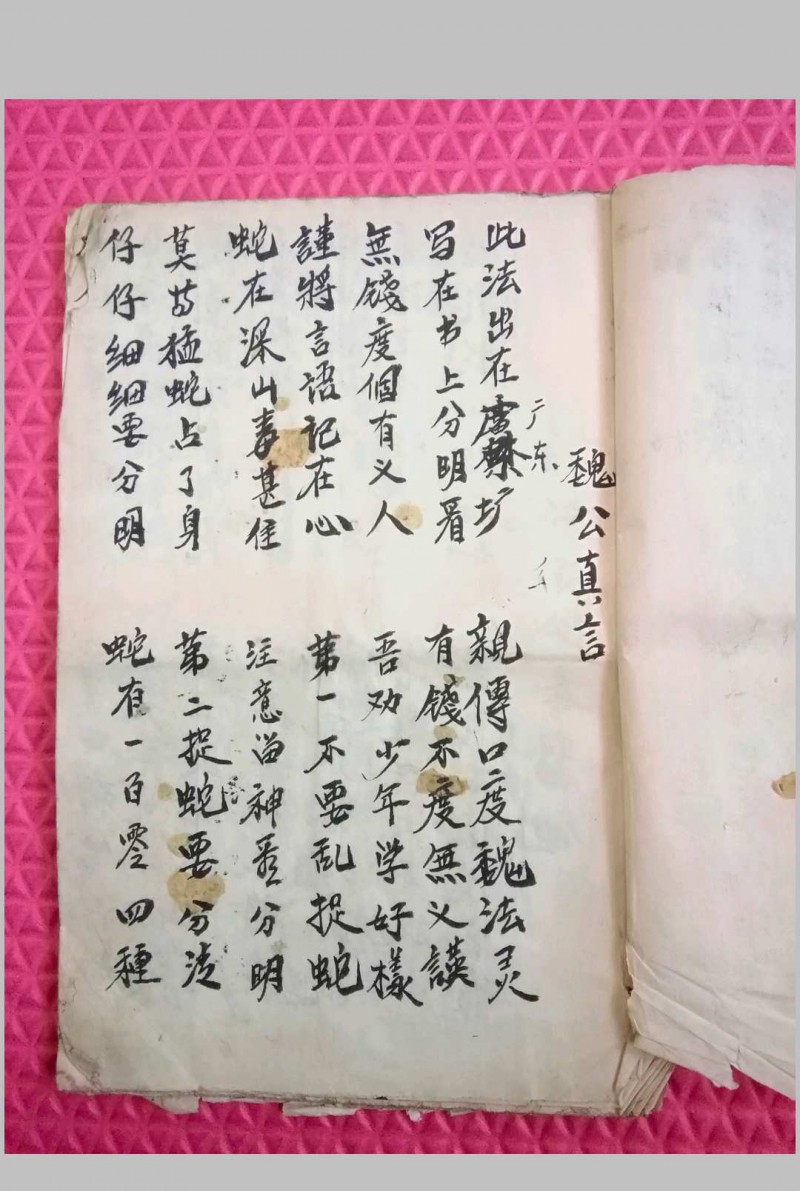 魏公真言
广东
此法出在 圹 親傳口度魏法灵
写在书上分明看 有錢不度無义
無錢度個有义人 吾劝少年学好樣
謹將言语记在心 苐一不要乱捉蛇
蛇在深山毒甚 注意留神 分明
莫 猛蛇占了身 苐二捉蛇要分清
仔仔细细要分明 蛇有一百零四種